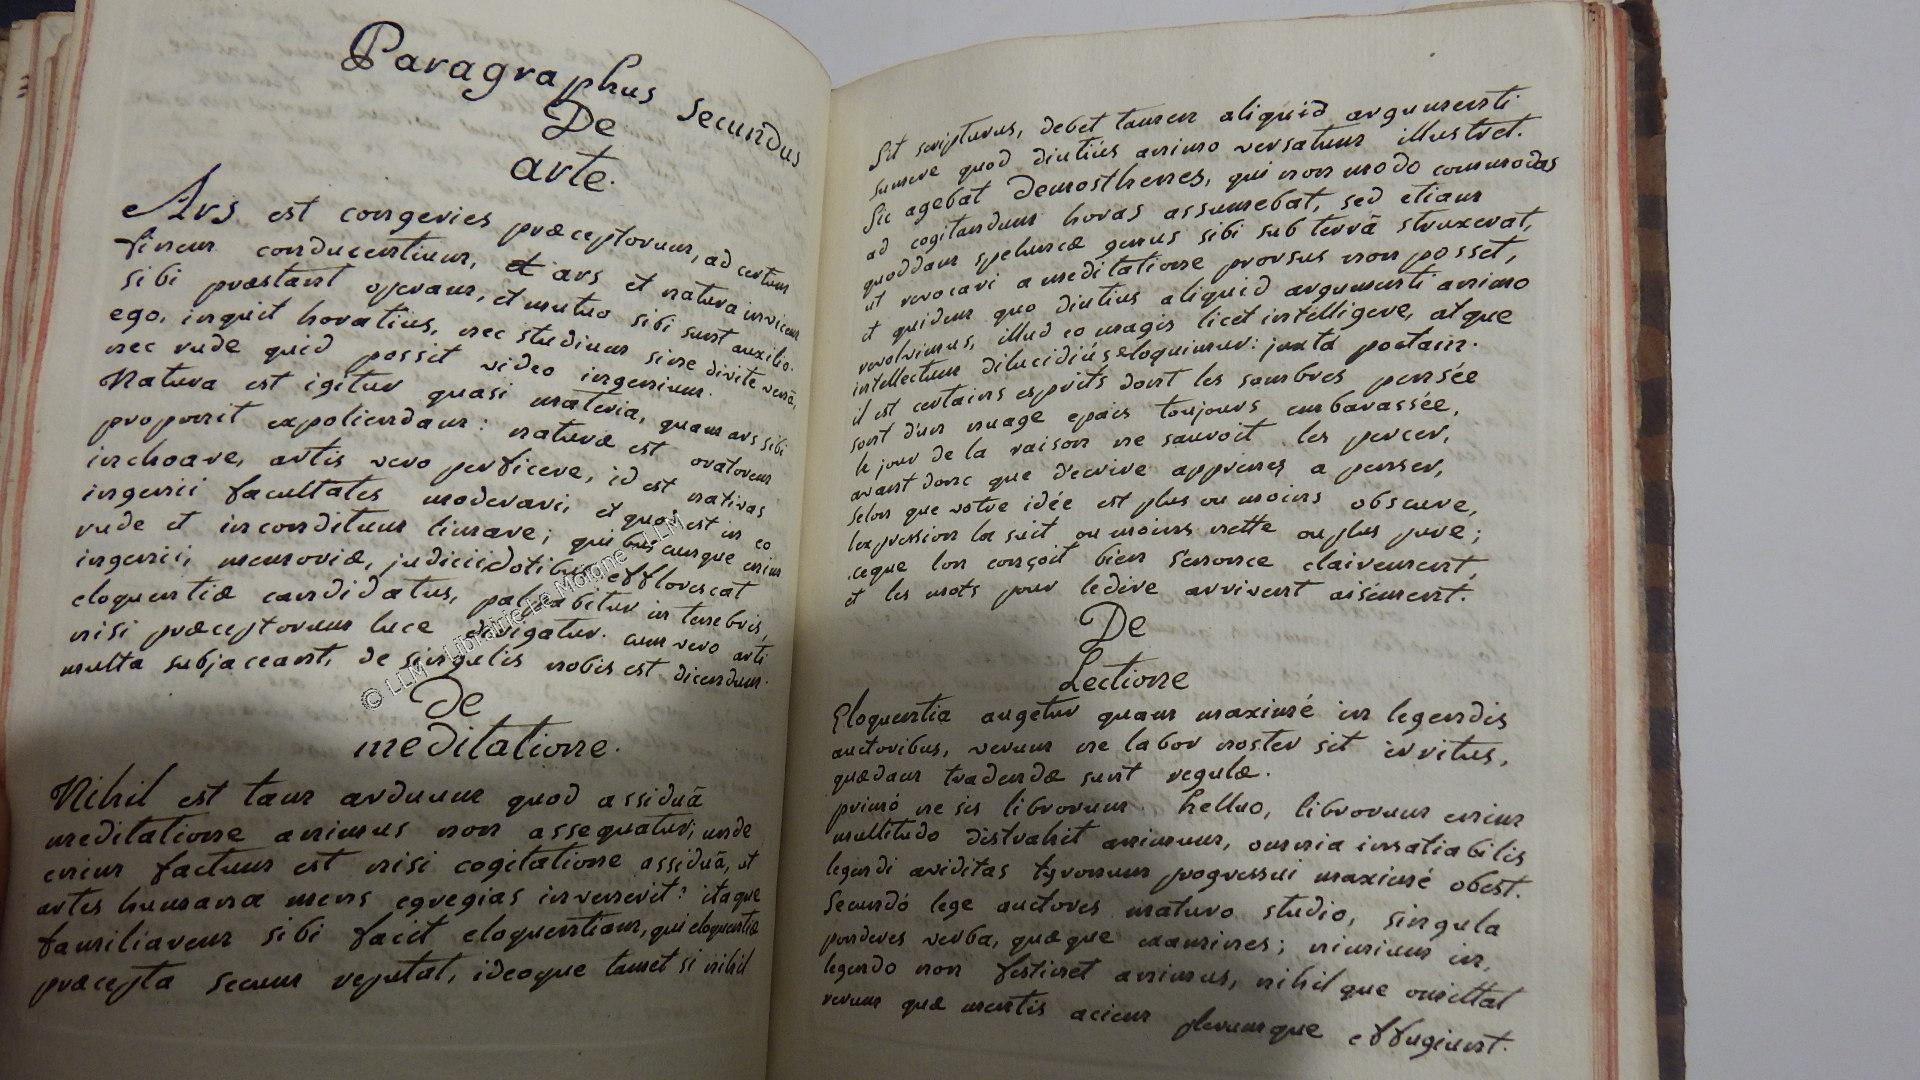 Paragraphus secundus
De
arte.
Ars est congeries præceptorum, ad certum
finem conducentium, et ars et natura invicem
sibi præstant operam, et mutuo sibi sunt auxilio.
ego, inquit horatius, nec studium sine divite venâ,
nec rude quid possit video ingenium.
Natura est igitur quasi materia, quam ars sibi
proponit expoliendam: naturæ est oratorem
inchoare, artis vero perficere, id est nativas
ingenii facultates moderari, et quod est in eo
rude et inconditum limare; quibuscunque enim
ingenii, memoriæ, judicii dotibus efflorescat
eloquentiæ candidatus, palpabitur in tenebris,
nisi præceptorum luce dirigatur. cum vero arti
multa subjaceant, de singulis nobis est dicendum.
De
meditatione.
Nihil est tam arduum quod assiduâ
meditatione animus non assequatur; unde
enim factum est nisi cogitatione assiduâ, ut
artes humana mens egregias invenerit? itaque
familiarem sibi facit eloquentiam, qui eloquentiæ
præcepta secum reputat, ideoque tamet si nihil
Sit scripturus, debet tamen aliquid argumenti
sumere quod diutiús animo versatum illustret.
Sic agebat Demosthenes, qui non modo commodas
ad cogitandum horas assumebat, sed etiam
quoddam speluncæ genus sibi sub terrâ struxerat,
ut revocari a meditatione prorsus non posset,
et quidem quo diutius aliquid argumenti animo
revolvimus, illud eo magis licet intelligere, atque
intellectum dilucidiús eloquimur: juxtá poetam.
il est certains esprits dont les sombres pensée
sont d'un nuage epais toujours embarassée,
le jour de la raison ne sauroit les percer,
avant donc que d'ecrire apprenez a penser,
selon que votre idée est plus ou moins obscure,
lexpression la suit ou moins nette ou plus pure;
ceque lon conçoit bien S'enonce clairement,
et les mots pour ledire arrivent aisément.
De
Lectione
Eloquentia augetur quam maximé in legendis
auctoribus, verum ne labor noster sit irritus,
quædam tradendæ sunt regulæ.
primó ne sis librorum helluo, librorum enim
multitudo distrahit animum, omnia insatiabilis
legendi aviditas tyronum progressui maximé obest.
Secundó lege auctores maturo studio, singula
ponderes verba, quæque examines; nimium in
legendo non festinet animus, nihilque omittat
rerum quæ mentis aciem plerumque effugiunt.
© LLM - Librairie Le Moigne - LLM